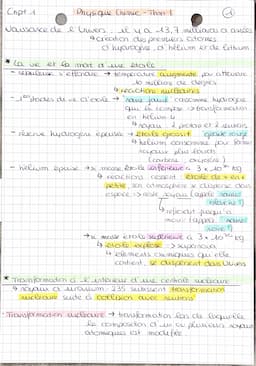 Chpt 1 Physique Chimie - Thème 1 1
Naissance de l'Univers il y a -13,7 milliards d'années
↳ création des premiers atomes
d'hydrogène, d'hélium et de lithium
* La vie et la mort d'une étoile
- nébuleuse s'effondre → température augmente pour atteindre
10 millions de degrés
↳ réactions nucléaires
- 1ers stades de vie d'étoile → naine jaune consomme hydrogène
qui la compose → transformation
en hélium 4
↳ noyau : 2 protons et 2 neutrons
- réserve hydrogène épuisée → étoile grossit géante rouge
↳ hélium consommé pour former
noyaux plus lourds
(carbone, oxygène)
- hélium épuisé → si masse étoile inférieure à 3 × 10 kg
↳ réactions cessent étoile de + en +
petite, son atmosphère se disperse dans
espace → reste noyau (appelé naine
blanche)
↳ refroidit jusqu'à
mort (appelé naine
noire)
→ si masse étoile supérieure à 3 × 10 kg
↳ étoile explose → supernova
↳ éléments chimiques qu'elle
contient, se dispersent dans Univers
* Transformation à l'intérieur d'une centrale nucléaire
↳ noyaux d'uranium-235 subissent transformation
nucléaire suite à collision avec neutrons
Transformation nucléaire → transformation lors de laquelle
la composition d'un ou plusieurs noyaux
atomiques est modifiée